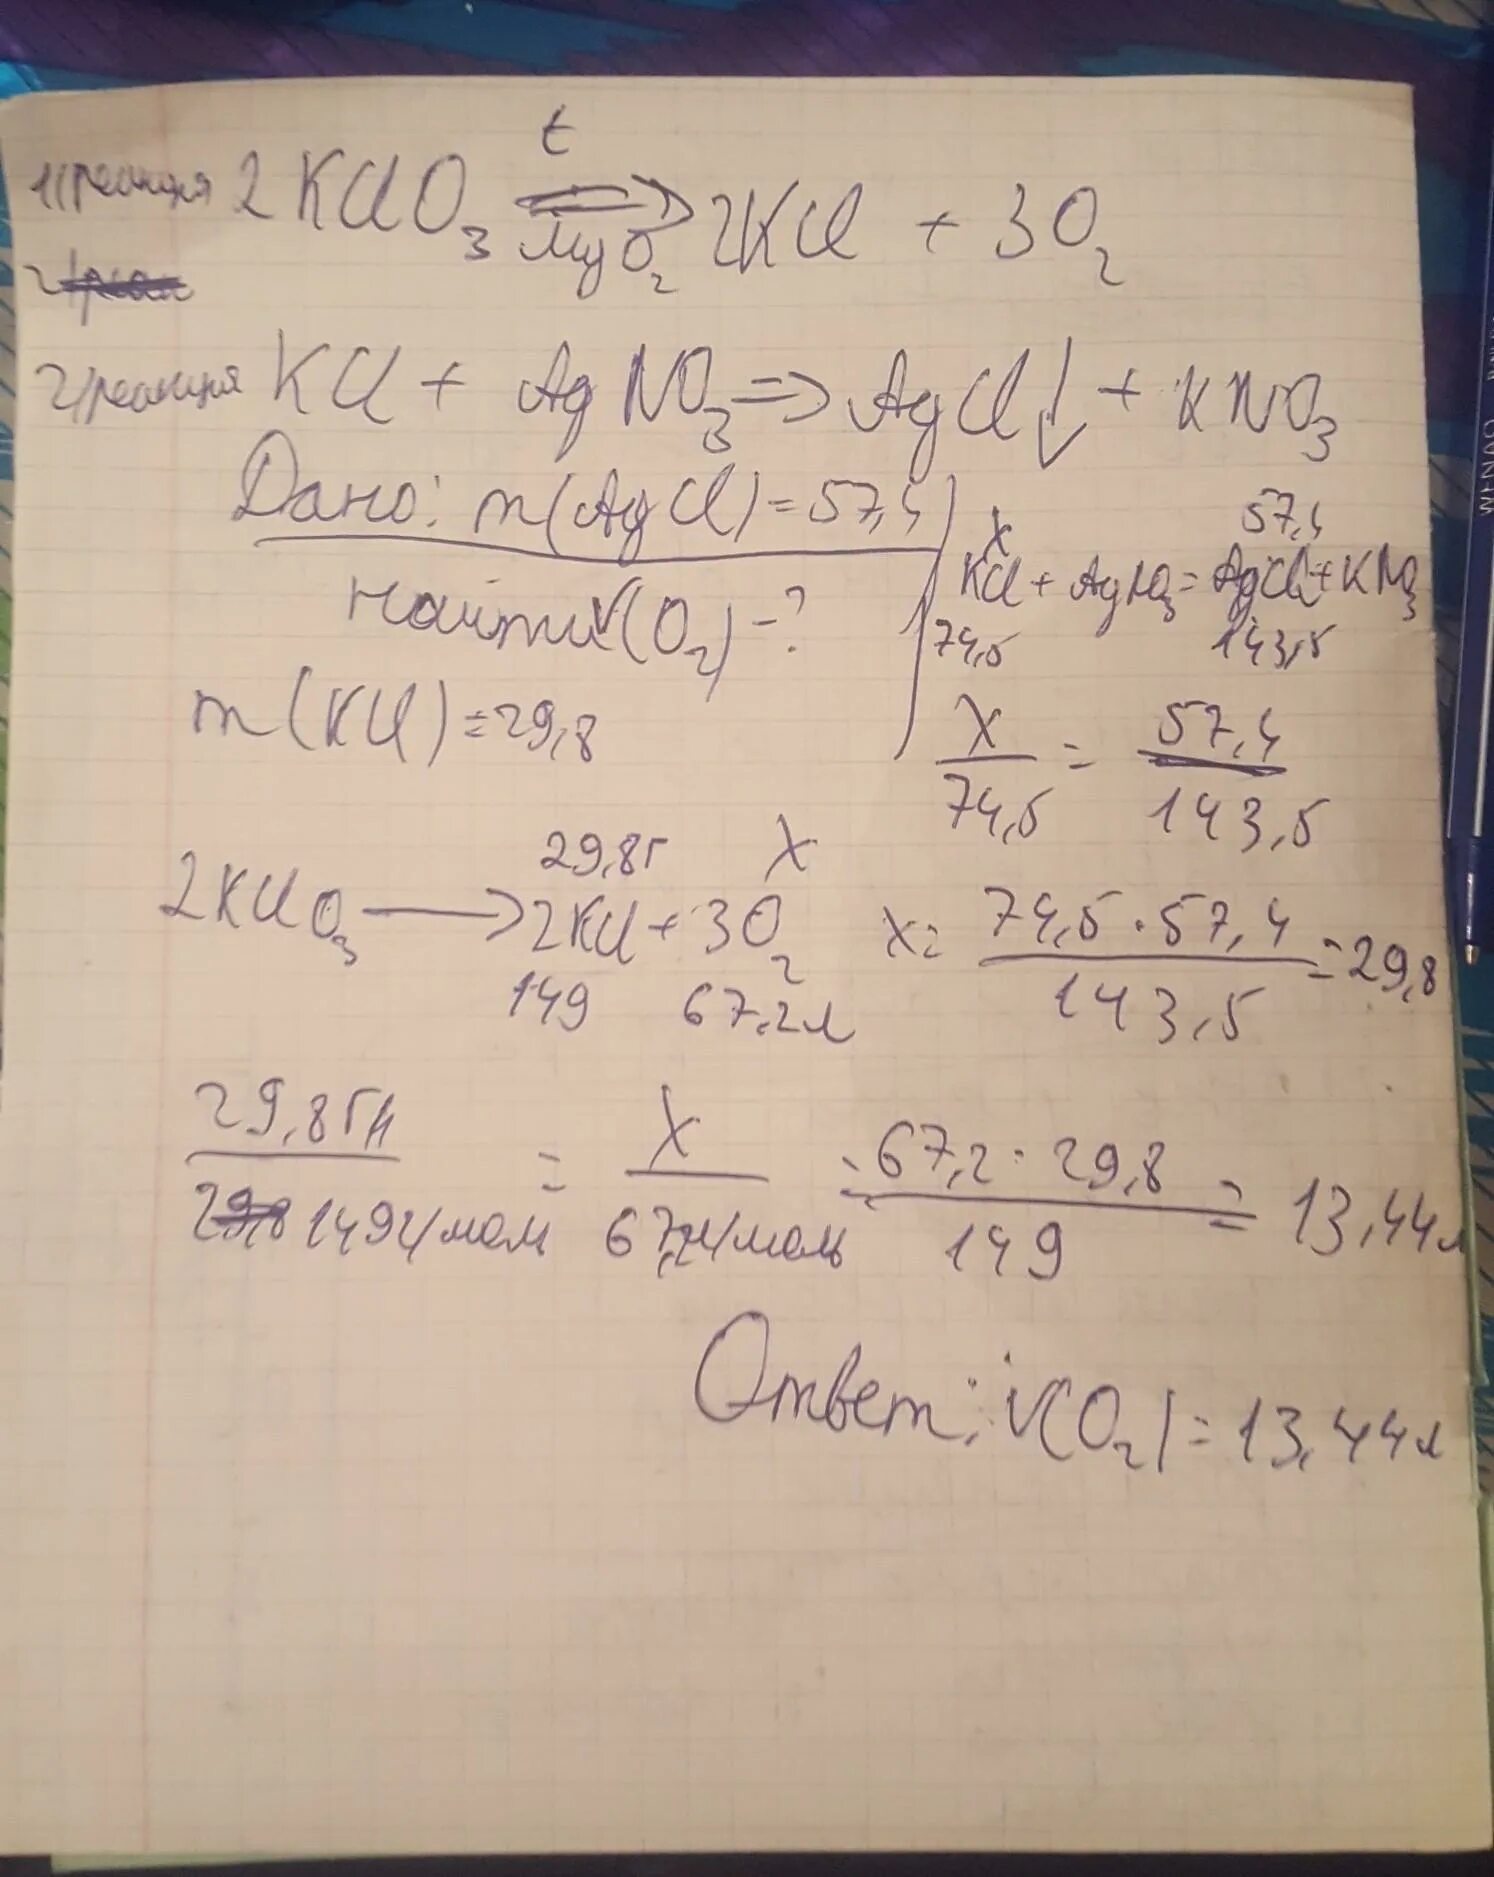 t
1) реакция 2KClO3 ⇌ 2KCl + 3O2
MgO2
2) реакция KCl + AgNO3 => AgCl↓ + KNO3
Дано: m(AgCl) = 57,4
найти V(O2) - ?
m(KCl) = 29,8
x 57,4
KCl + AgNO3 = AgCl + KNO3
74,5 143,5
x/74,5 = 57,4/143,5
x = 74,5 · 57,4 / 143,5 = 29,8
29,8г x
2KClO3 → 2KCl + 3O2
149 67,2л
29,8г / 149г/мол = x / 67,2л/моль
67,2 · 29,8 / 149 = 13,44л
Ответ: V(O2) = 13,44л